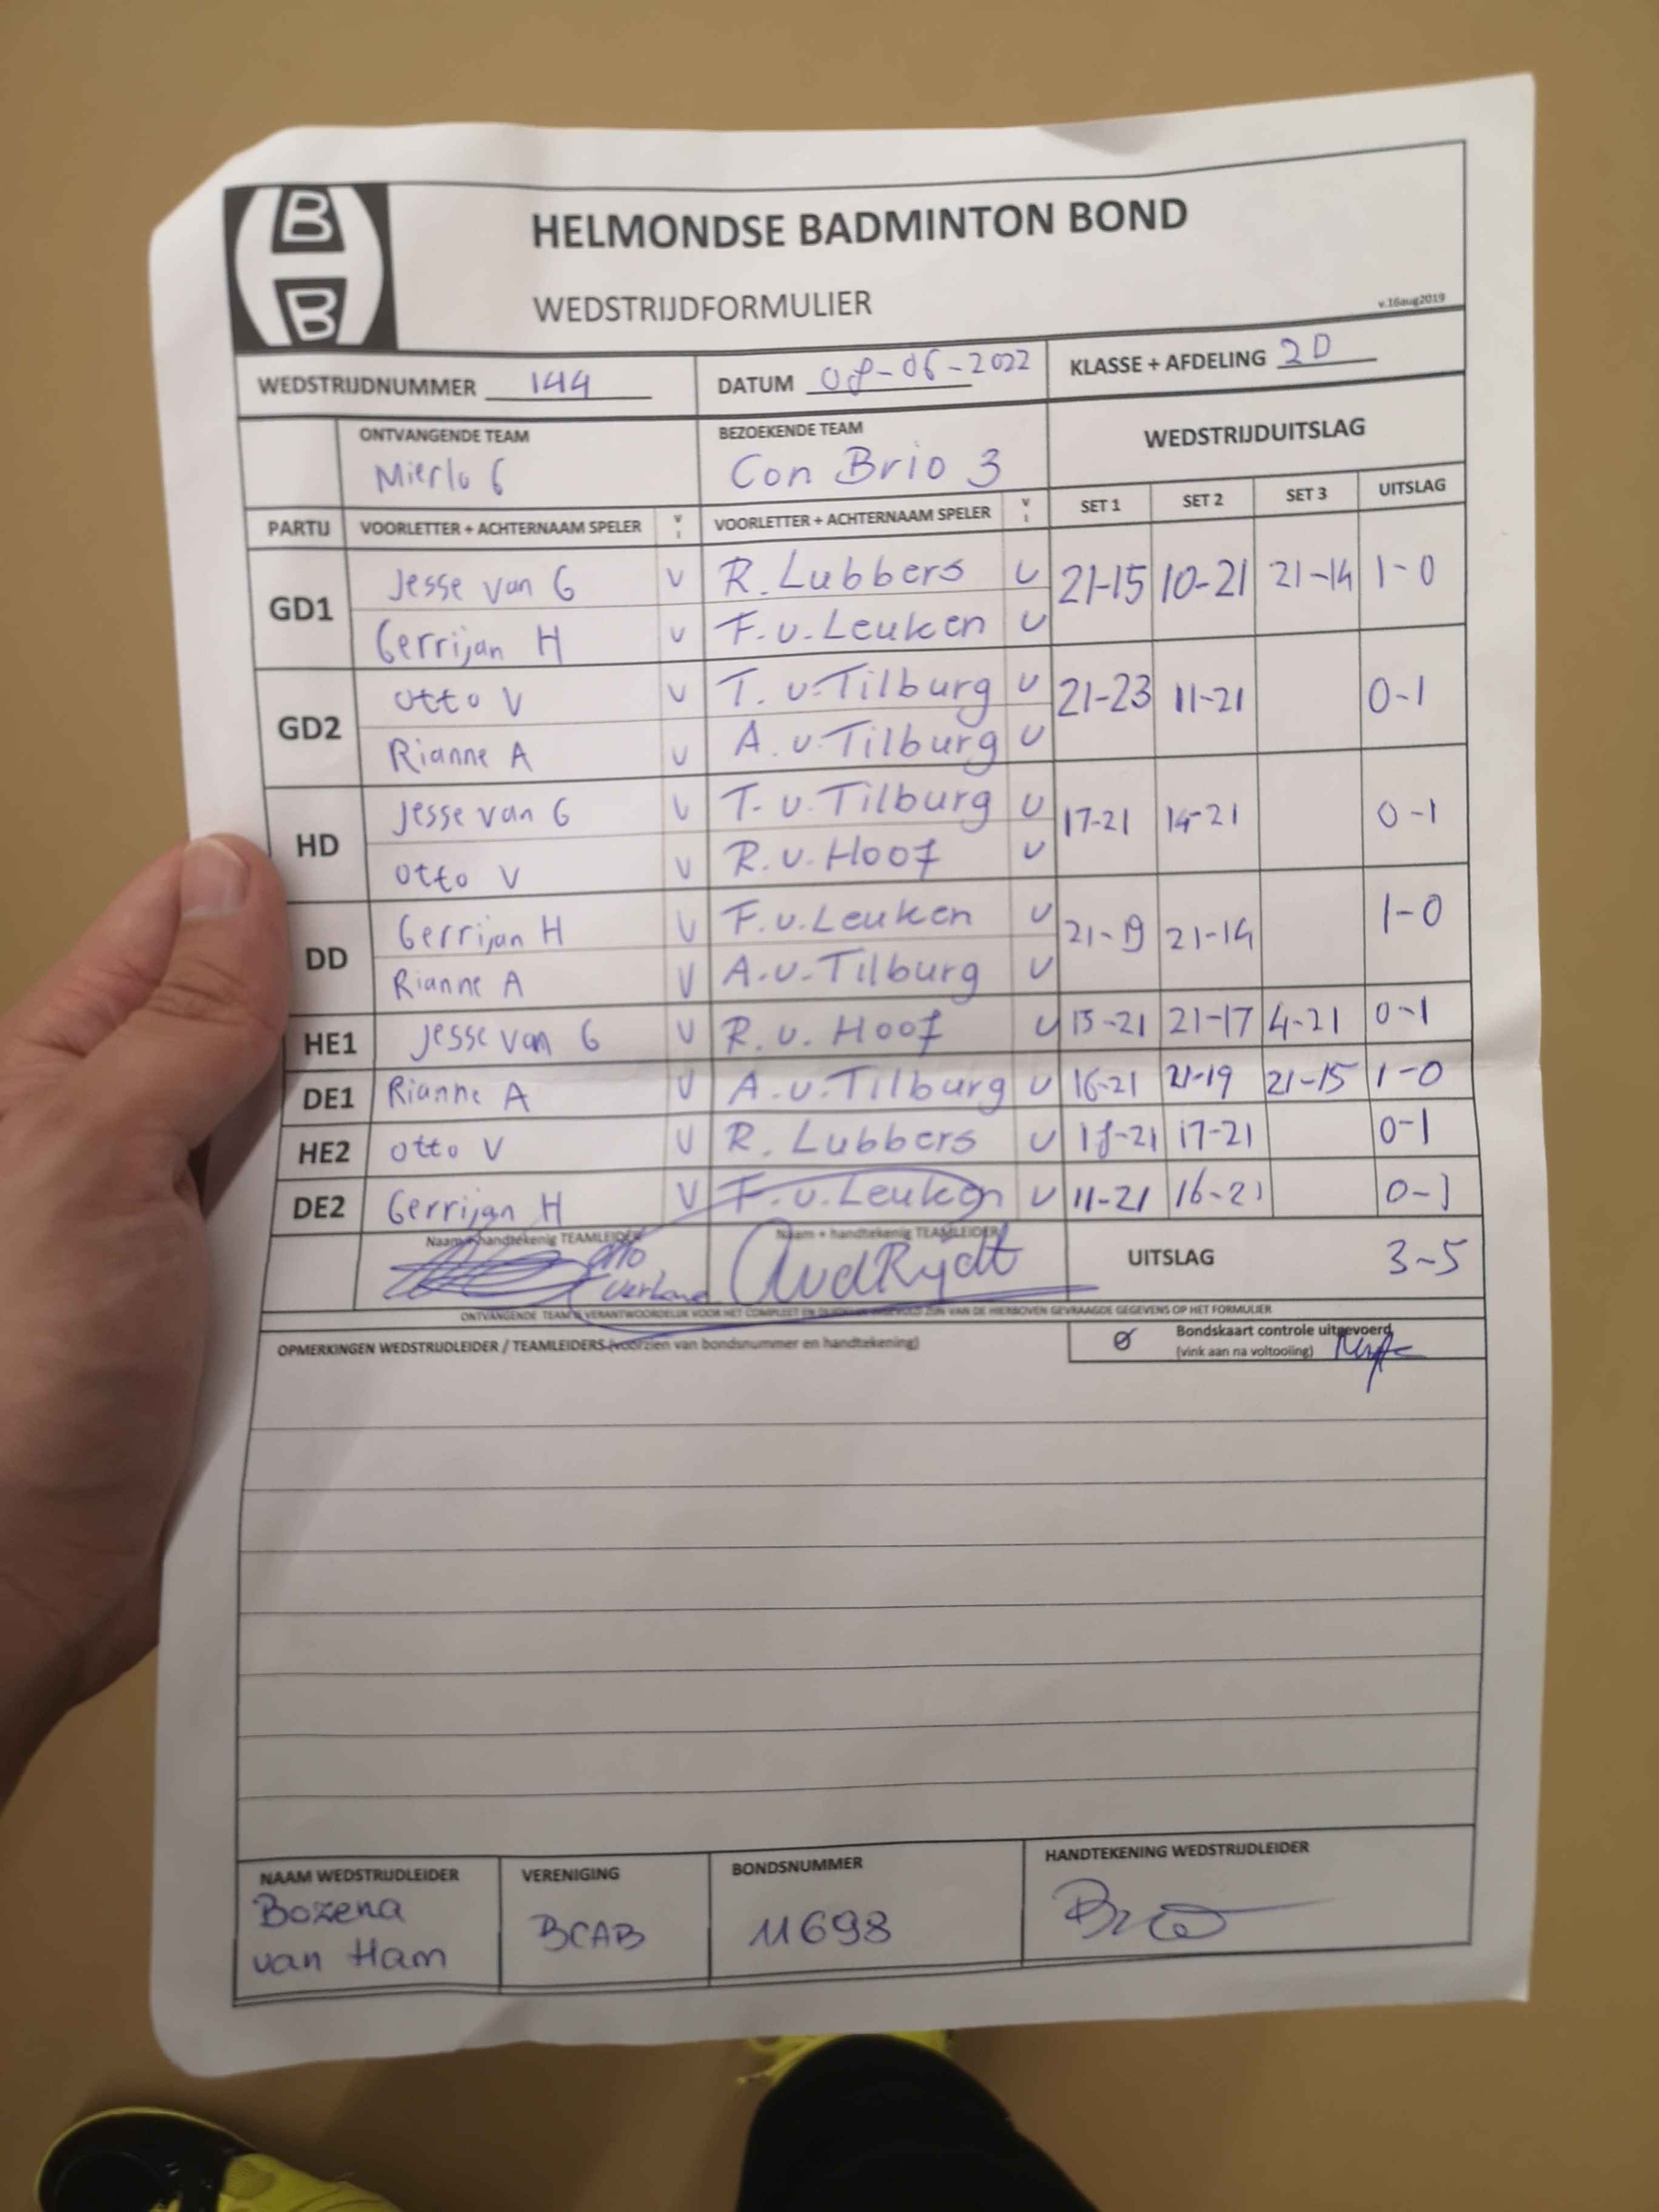 B
B
HELMONDSE BADMINTON BOND
WEDSTRIJDFORMULIER
v.16aug2019
WEDSTRIJDNUMMER 144 DATUM 08-06-2022 KLASSE + AFDELING 2D
ONTVANGENDE TEAM BEZOEKENDE TEAM WEDSTRIJDUITSLAG
Mierlo 6 Con Brio 3
PARTIJ VOORLETTER + ACHTERNAAM SPELER V I VOORLETTER + ACHTERNAAM SPELER V I SET 1 SET 2 SET 3 UITSLAG
GD1 Jesse van G V R. Lubbers U 21-15 10-21 21-14 1-0
Gerrijan H V F.v.Leuken U
GD2 Otto V V T. v.Tilburg U 21-23 11-21 0-1
Rianne A V A. v.Tilburg U
HD Jesse van G V T. v.Tilburg U 17-21 14-21 0-1
Otto V V R.v. Hoof U
DD Gerrijan H V F.v.Leuken U 21-19 21-14 1-0
Rianne A V A.v.Tilburg U
HE1 Jesse van G V R.v. Hoof U 15-21 21-17 4-21 0-1
DE1 Rianne A V A.v.Tilburg U 16-21 21-19 21-15 1-0
HE2 Otto V V R. Lubbers U 18-21 17-21 0-1
DE2 Gerrijan H V F.v.Leuken U 11-21 16-21 0-1
Naam + handtekenig TEAMLEIDER Naam + handtekenig TEAMLEIDER UITSLAG 3-5
Otto AvdRijdt
ONTVANGENDE TEAM IS VERANTWOORDELIJK VOOR HET COMPLEET EN VAN DE HIERBOVEN GEVRAAGDE GEGEVENS OP HET FORMULIER
OPMERKINGEN WEDSTRIJDLEIDER / TEAMLEIDERS (voorzien van bondsnummer en handtekening) Bondskaart controle uitgevoerd
(vink aan na voltooiing)
NAAM WEDSTRIJDLEIDER VERENIGING BONDSNUMMER HANDTEKENING WEDSTRIJDLEIDER
Bozena BCAB 11698
van Ham